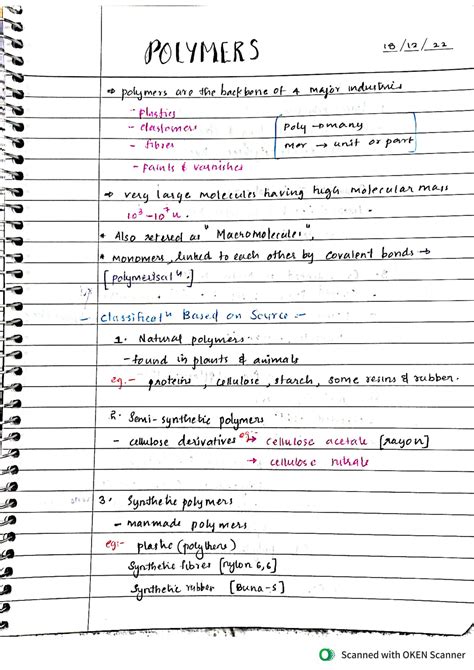 POLYMERS
18/12/22
→ polymers are the backbone of 4 major industries
- plastics
- elastomers
- fibres
- paints & varnishes
Poly → many
mer → unit or part
→ very large molecules having high molecular mass
10³-10⁷u.
* Also refered as "Macromolecules",
* monomers, linked to each other by covalent bonds →
[polymerisatⁿ.]
- Classificatⁿ Based on Source :-
1. Natural polymers.
- found in plants & animals
eg:- proteins, cellulose, starch, some resins & rubber.
2. Semi-synthetic polymers
- cellulose derivatives eg:→ cellulose acetate [rayon]
→ cellulose nitrate
3. Synthetic polymers
- manmade polymers
eg:- plastic (polythers)
Synthetic fibres [nylon 6,6]
Synthetic rubber [Buna-S]
Scanned with OKEN Scanner